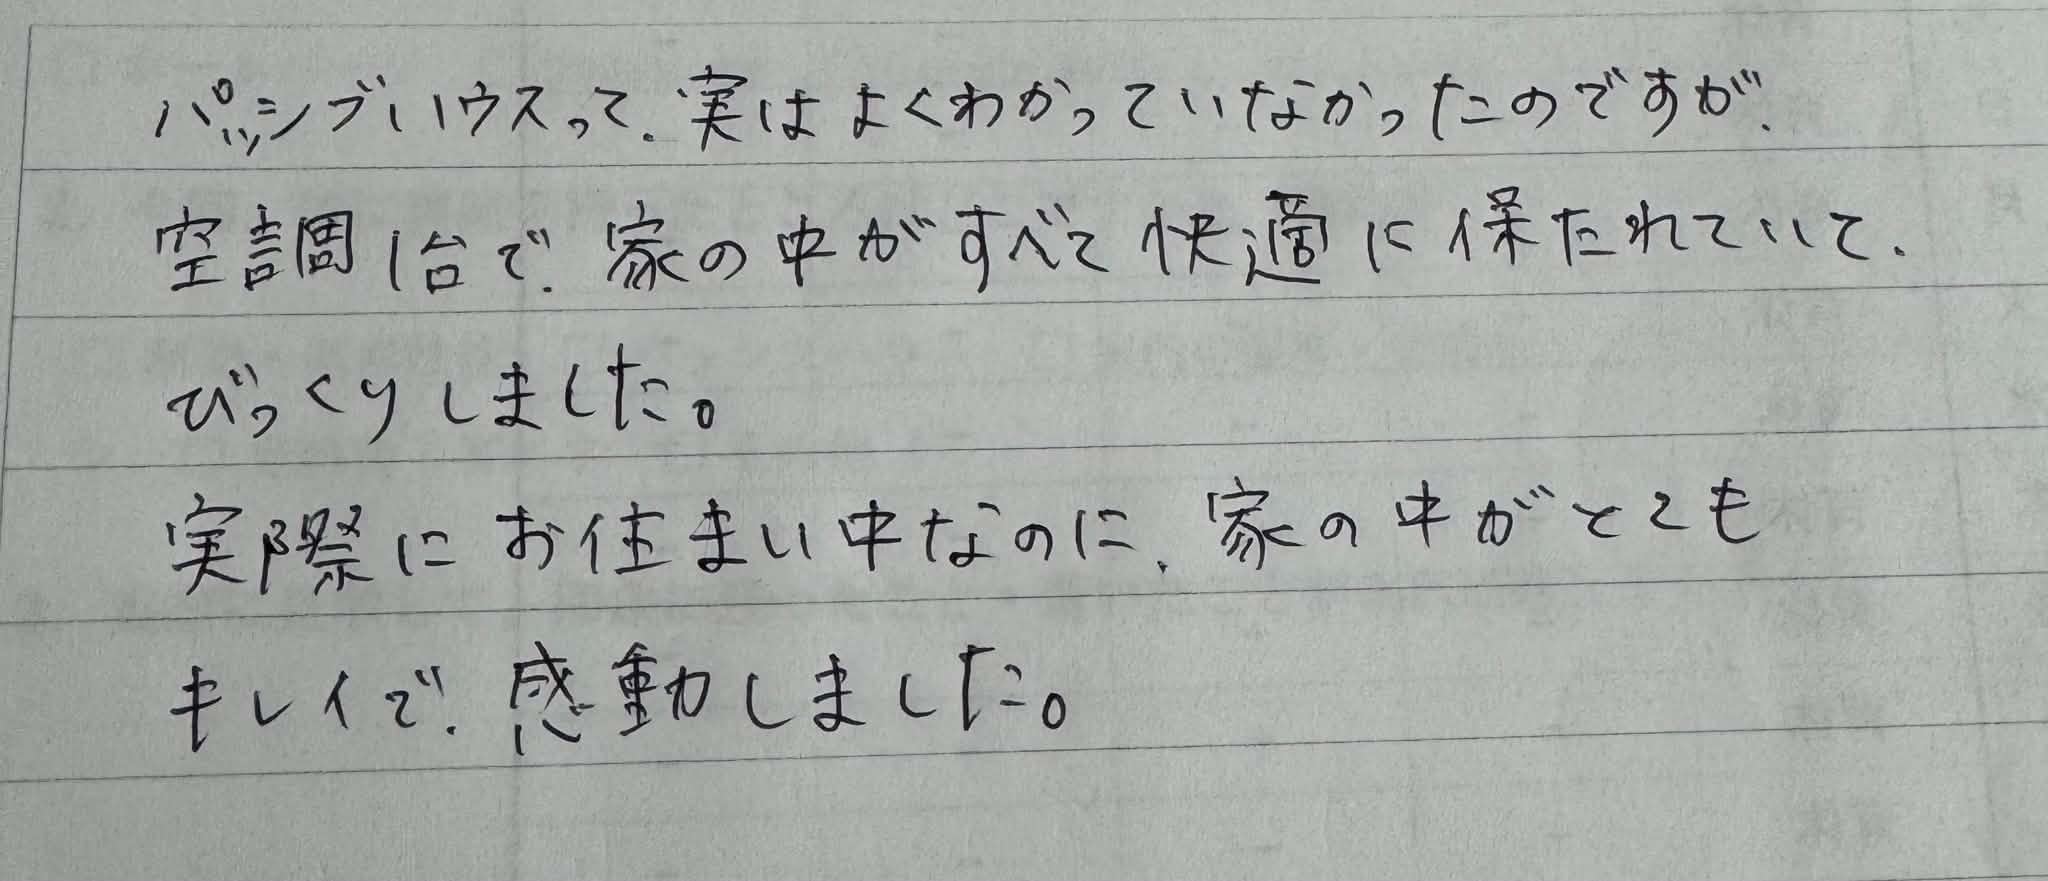 パッシブハウスって、実はよくわかっていなかったのですが、
空調1台で、家の中がすべて快適に保たれていて、
びっくりしました。
実際にお住まい中なのに、家の中がとても
キレイで、感動しました。